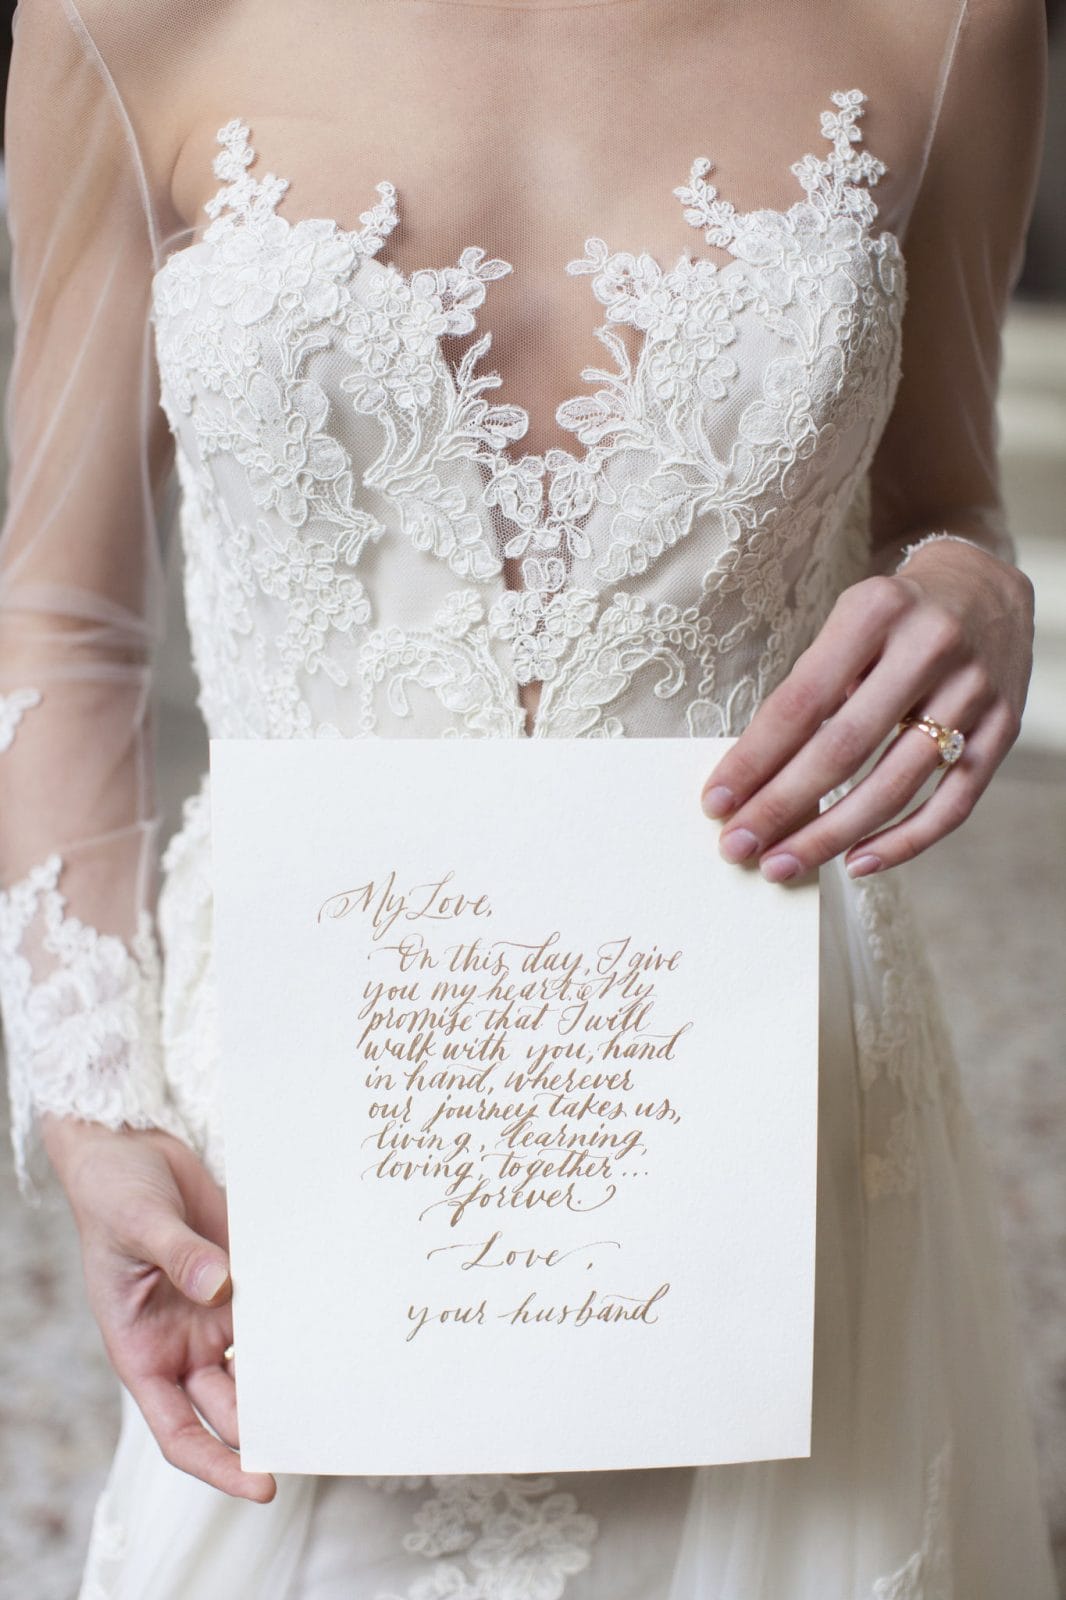 My Love,
On this day, I give
you my heart. My
promise that I will
walk with you, hand
in hand, wherever
our journey takes us,
living, learning,
loving, together...
forever.
Love,
your husband